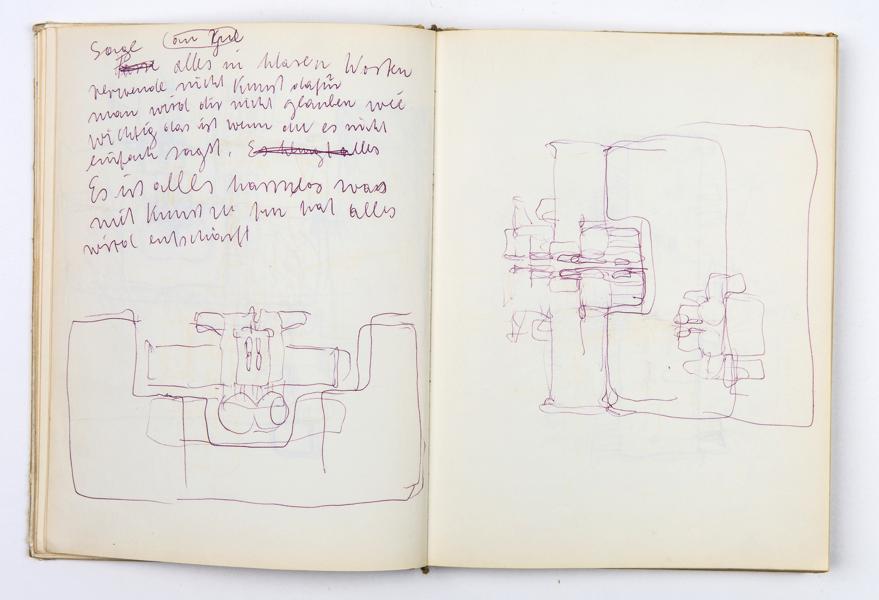 Sage
alles in klaren Worten
verwende nicht Kunst dafür
man wird dir nicht glauben wie
wichtig das ist wenn du es nicht
einfach sagst. alles
Es ist alles harmlos was
mit Kunst zu tun hat alles
wird entschärft